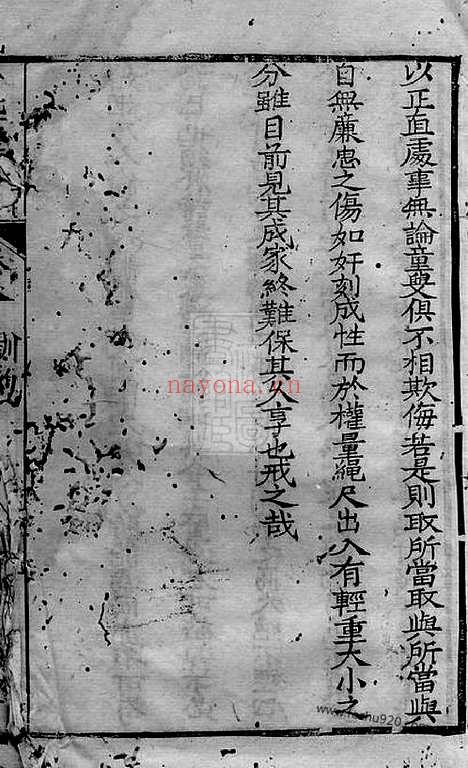 以正直處事無論童叟俱不相欺侮若是則取所當取與所當與
自無廉惠之傷如奸刻成性而於權量繩尺出入有輕重大小之
分雖目前見其成家終難保其久享也戒之哉
訓
nayona.cn